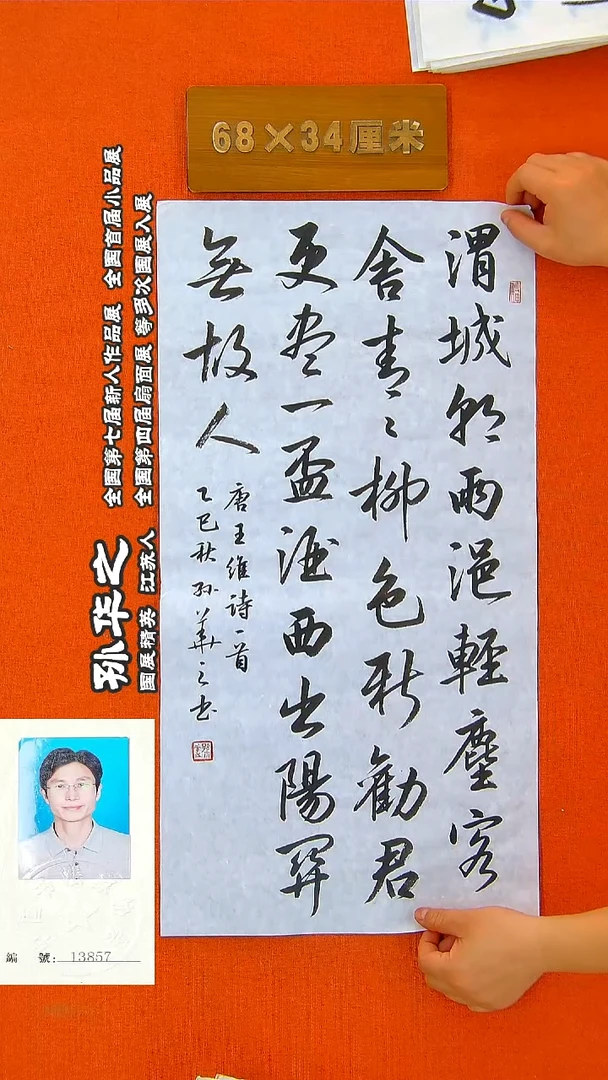 68×34厘米
渭城朝雨浥輕塵客
舍青々柳色新勸君
更盡一盃酒西出陽關
無故人
唐王維詩一首
乙巳秋孫華之书
孙华之
全国第七届新人作品展 全国首届小品展
国展精英 江苏人 全国第四届扇面展 等多次国展入展
編號: 13857